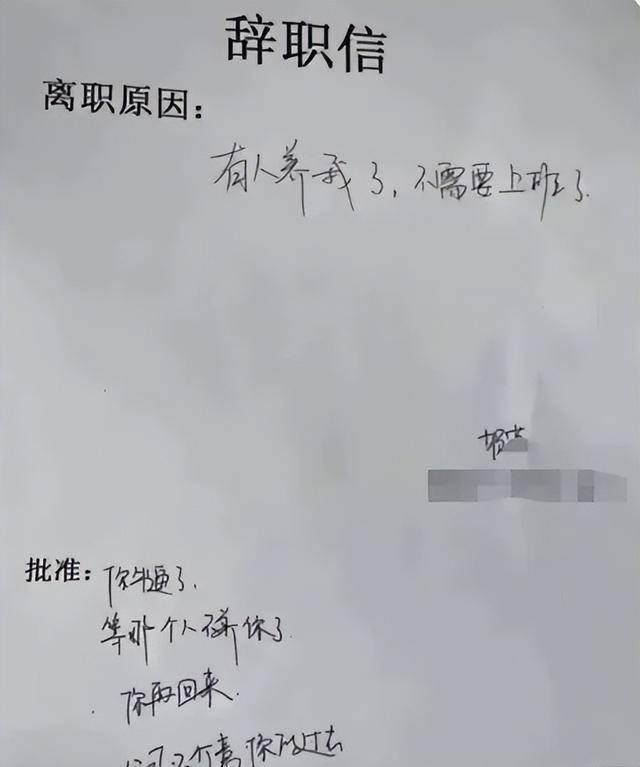 辞职信
离职原因：
有人养我了，不需要上班了.
批准：你牛逼了.
等那个人不养你了
你再回来.
你过去